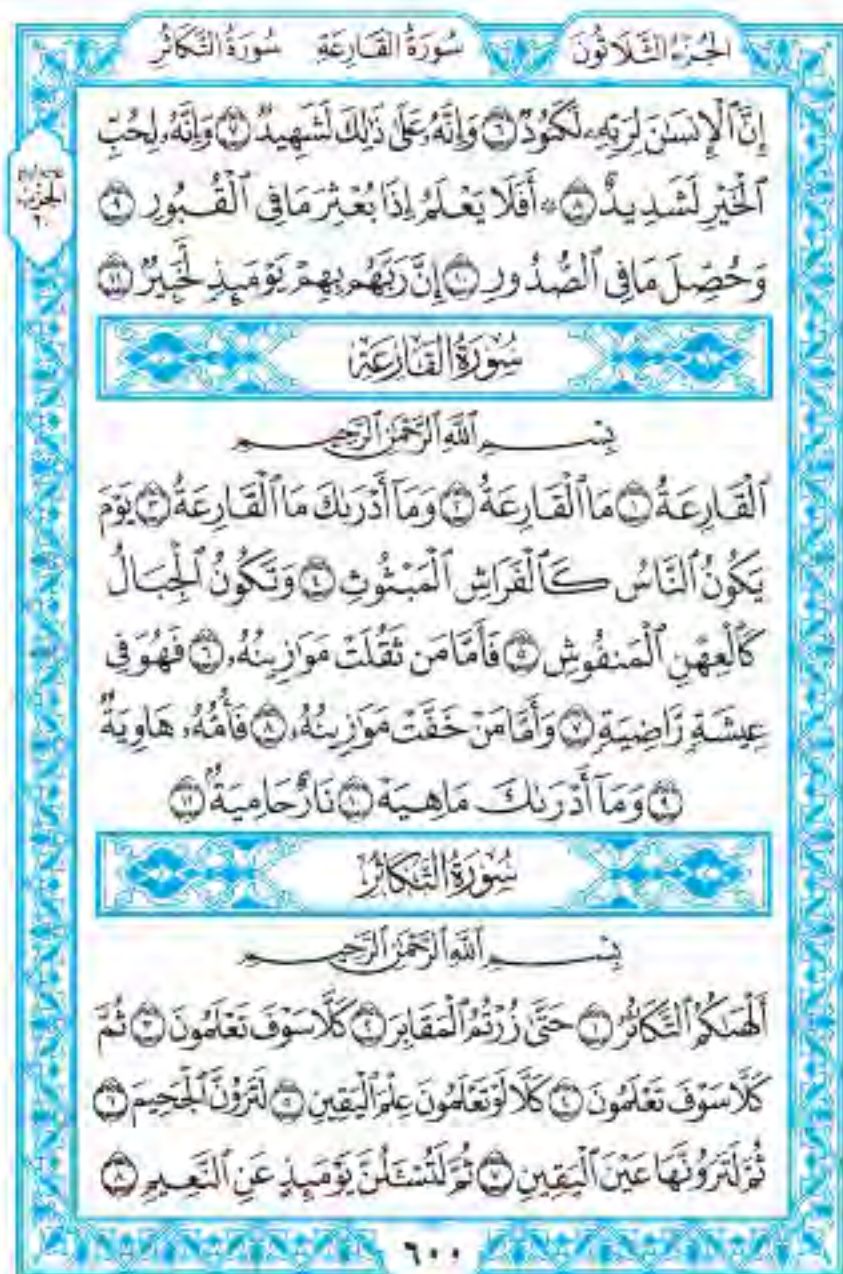 الجزء الثلاثون سورة القارعة سورة التكاثر
إِنَّ ٱلْإِنسَٰنَ لِرَبِّهِۦ لَكَنُودٌ ٦ وَإِنَّهُۥ عَلَىٰ ذَٰلِكَ لَشَهِيدٌ ٧ وَإِنَّهُۥ لِحُبِّ
ٱلْخَيْرِ لَشَدِيدٌ ٨ ۞ أَفَلَا يَعْلَمُ إِذَا بُعْثِرَ مَا فِى ٱلْقُبُورِ ٩
وَحُصِّلَ مَا فِى ٱلصُّدُورِ ١٠ إِنَّ رَبَّهُم بِهِمْ يَوْمَئِذٍ لَّخَبِيرٌۢ ١١
الحزب
٦٠
سُورَةُ القَارِعَةِ
بِسْمِ ٱللَّهِ ٱلرَّحْمَٰنِ ٱلرَّحِيمِ
ٱلْقَارِعَةُ ١ مَا ٱلْقَارِعَةُ ٢ وَمَآ أَدْرَىٰكَ مَا ٱلْقَارِعَةُ ٣ يَوْمَ
يَكُونُ ٱلنَّاسُ كَٱلْفَرَاشِ ٱلْمَبْثُوثِ ٤ وَتَكُونُ ٱلْجِبَالُ
كَٱلْعِهْنِ ٱلْمَنفُوشِ ٥ فَأَمَّا مَن ثَقُلَتْ مَوَٰزِينُهُۥ ٦ فَهُوَ فِى
عِيشَةٍ رَّاضِيَةٍ ٧ وَأَمَّا مَنْ خَفَّتْ مَوَٰزِينُهُۥ ٨ فَأُمُّهُۥ هَاوِيَةٌ
٩ وَمَآ أَدْرَىٰكَ مَا هِيَهْ ١٠ نَارٌ حَامِيَةٌۢ ١١
سُورَةُ التَّكَاثُرِ
بِسْمِ ٱللَّهِ ٱلرَّحْمَٰنِ ٱلرَّحِيمِ
أَلْهَىٰكُمُ ٱلتَّكَاثُرُ ١ حَتَّىٰ زُرْتُمُ ٱلْمَقَابِرَ ٢ كَلَّا سَوْفَ تَعْلَمُونَ ٣ ثُمَّ
كَلَّا سَوْفَ تَعْلَمُونَ ٤ كَلَّا لَوْ تَعْلَمُونَ عِلْمَ ٱلْيَقِينِ ٥ لَتَرَوُنَّ ٱلْجَحِيمَ ٦
ثُمَّ لَتَرَوُنَّهَا عَيْنَ ٱلْيَقِينِ ٧ ثُمَّ لَتُسْـَٔلُنَّ يَوْمَئِذٍ عَنِ ٱلنَّعِيمِ ٨
٦٠٠